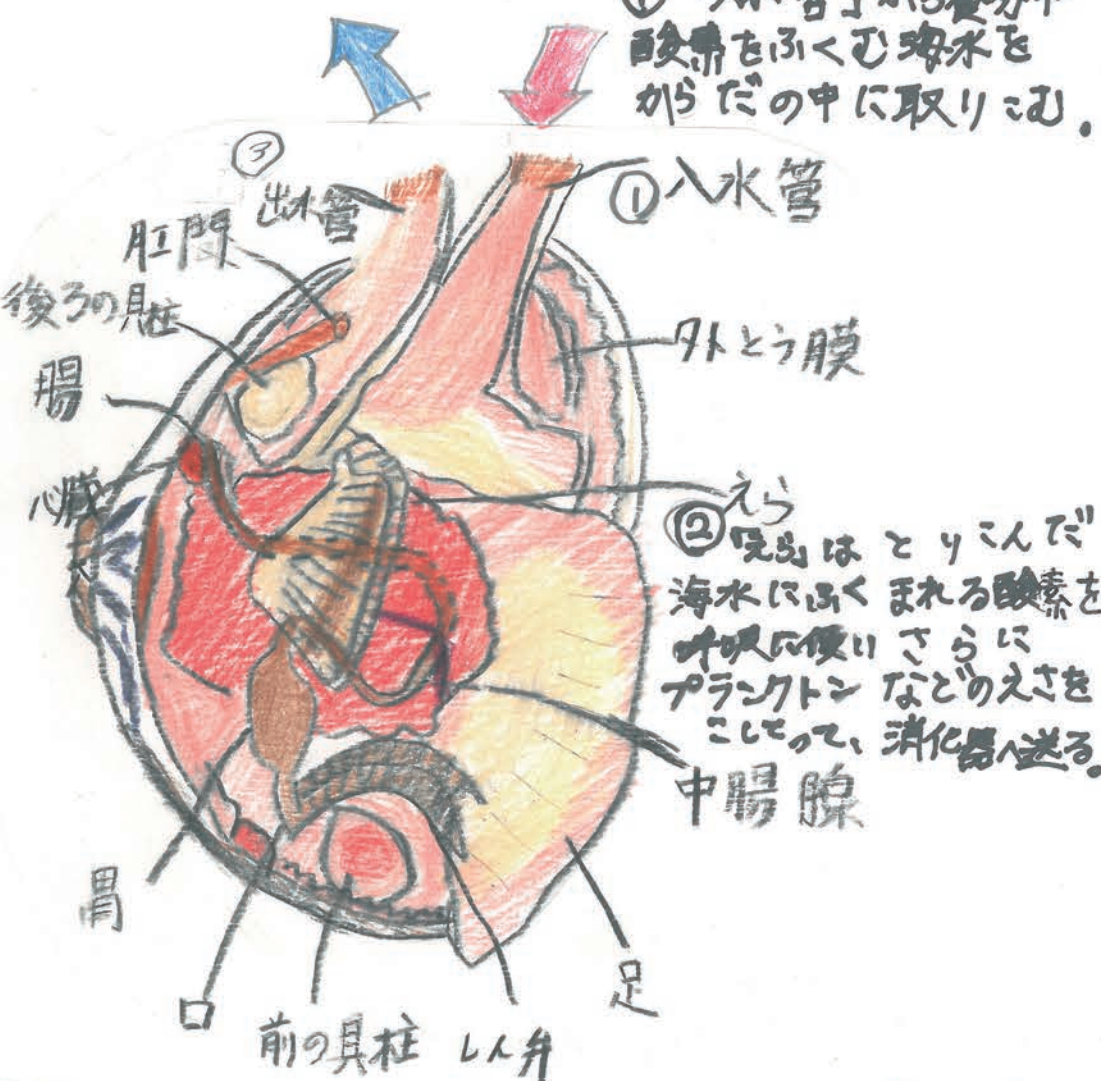 ① 「入水管」から養分や
酸素をふくむ海水を
からだの中に取りこむ。
③
出水管
①入水管
肛門
後ろの貝柱
外とう膜
腸
心臓
えら
②「えら」は とりこんだ
海水にふくまれる酸素を
呼吸に使い さらに
プランクトン などのえさを
こしとって、消化器へ送る。
中腸腺
胃
口
前の貝柱
しん弁
足